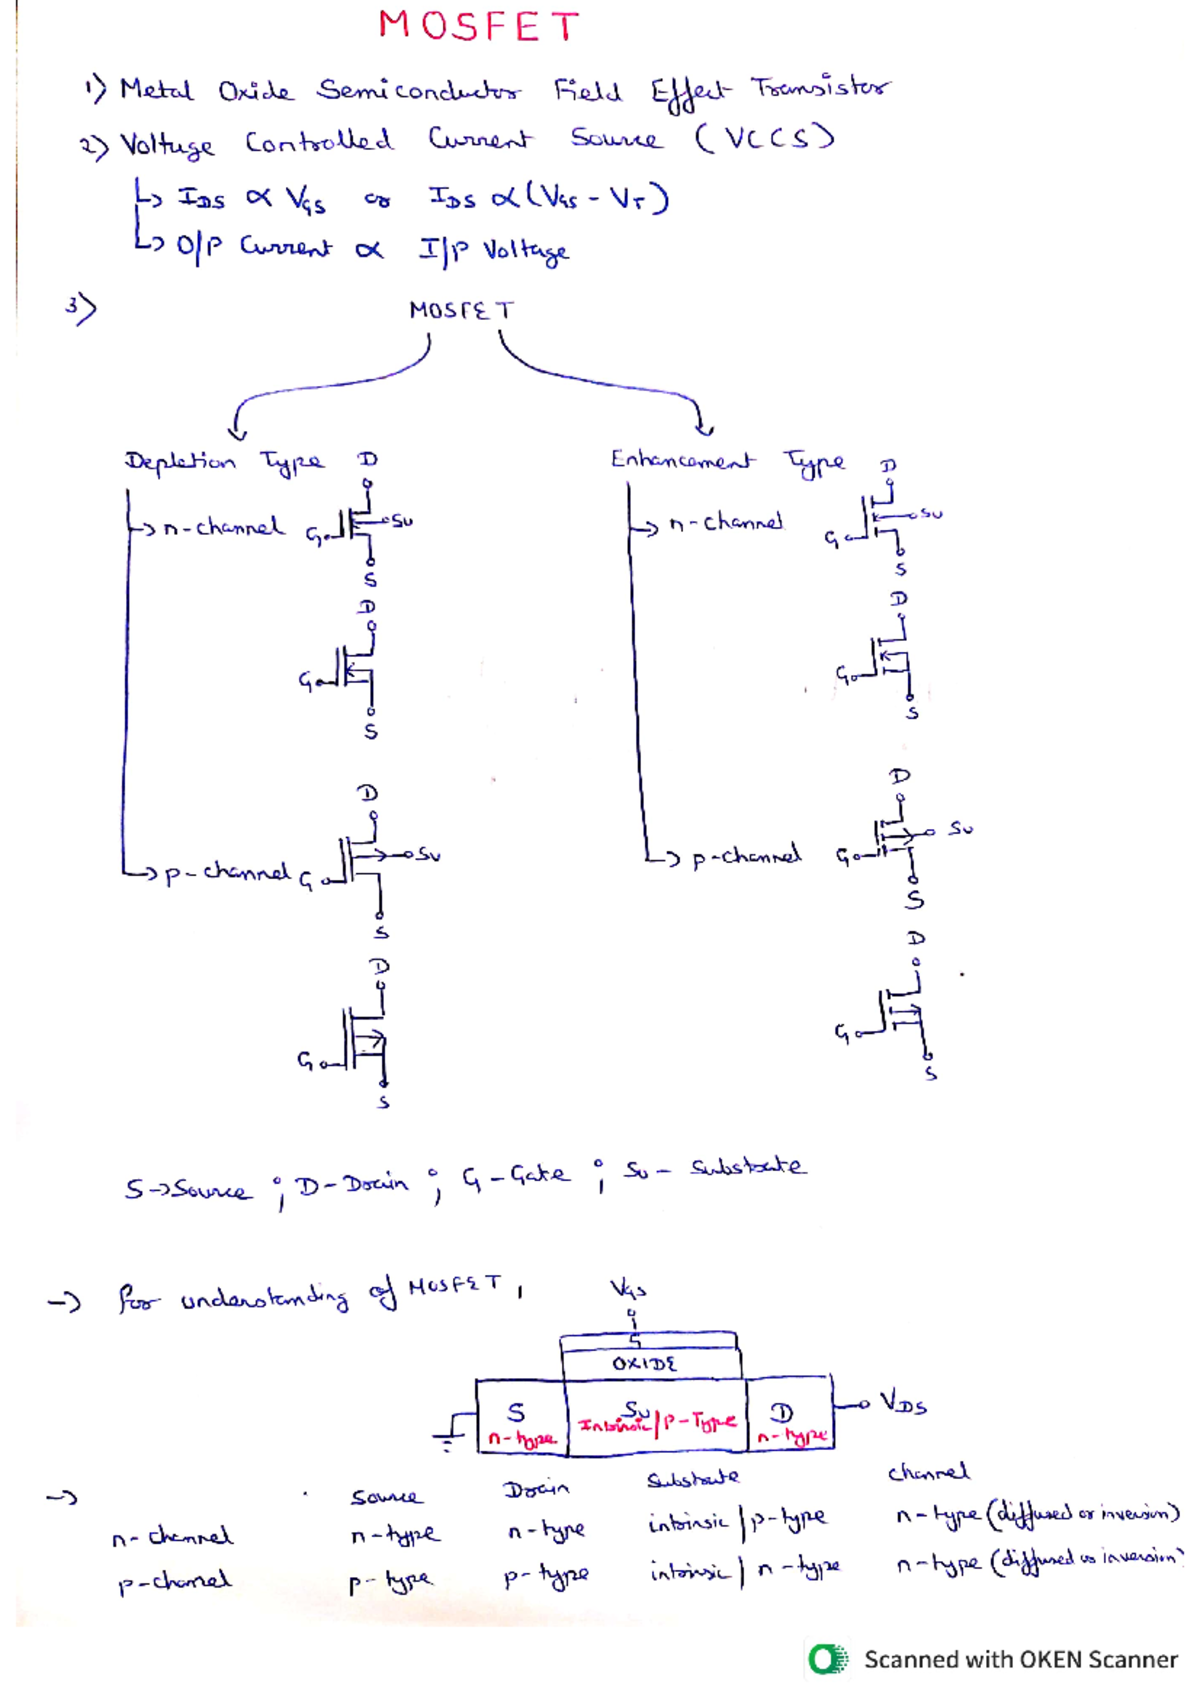 MOSFET
1) Metal Oxide Semiconductor Field Effect Transistor
2) Voltage Controlled Current Source (VCCS)
↳ IDS ∝ VGS or IDS ∝ (VGS - VT)
↳ O/P Current ∝ I/P Voltage
3) MOSFET
Depletion Type D
Enhancement Type D
→ n-channel G Su
→ n-channel G Su
S
S
D
D
G
G
S
S
D
D
→ p-channel G Su
→ p-channel G Su
S
S
D
D
G
G
S
S
S → Source ; D - Drain ; G - Gate ; Su - Substrate
→ for understanding of MOSFET, VGS
OXIDE
S Su D VDS
n-type Intrinsic/P-Type n-type
→ Source Drain Substrate channel
n-channel n-type n-type intrinsic | p-type n-type (diffused or inversion)
p-channel p-type p-type intrinsic | n-type n-type (diffused or inversion)
Scanned with OKEN Scanner